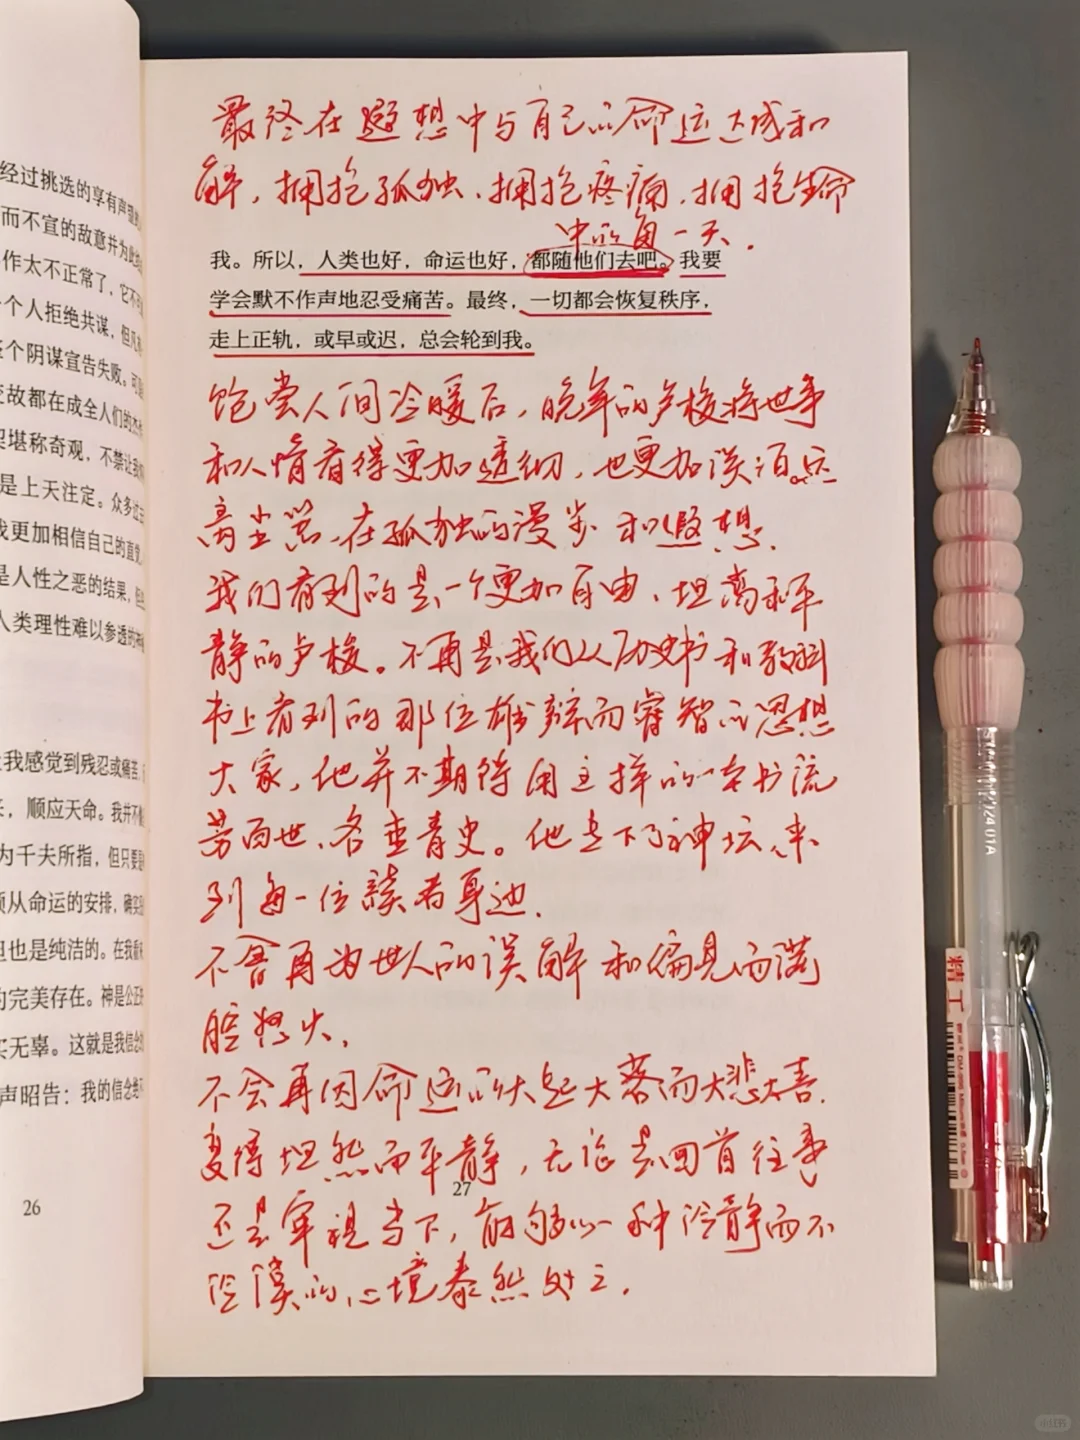 经过挑选的享有声望的
而不宣的敌意并为此
作太不正常了，它不可
一个人拒绝共谋，但凡
整个阴谋宣告失败。可
变故都在成全人们的杰
堪称奇观，不禁让我
是上天注定。众多过去
我更加相信自己的直觉，
是人性之恶的结果，但
人类理性难以参透的神
让我感觉到残忍或痛苦，
来，顺应天命。我并不
为千夫所指，但只要是
顺从命运的安排，确实
但也是纯洁的。在我看来
的完美存在。神是公正的
实无辜。这就是我信念的
声昭告：我的信念绝不
26
最终在遐想中与自己的命运达成和
解，拥抱孤独、拥抱疼痛，拥抱生命
中的每一天．
我。所以，人类也好，命运也好，都随他们去吧。我要
学会默不作声地忍受痛苦。最终，一切都会恢复秩序，
走上正轨，或早或迟，总会轮到我。
饱尝人间冷暖后，晚年的卢梭将世事
和人情看得更加透彻，也更加淡泊。远
离尘嚣、在孤独的漫步和遐想．
我们看到的是一个更加自由、坦荡和平
静的卢梭。不再是我们从历史书和教科
书上看到的那位雄辩而睿智的思想
大家，他并不期待用这样的一本书流
芳百世、名垂青史。他走下了神坛，来
到每一位读者身边．
不会再为世人的误解和偏见而满
腔怒火，
不会再因命运的大起大落而大悲大喜．
变得坦然而平静，无论是回首往事
27
还是审视当下，能够以一种冷静而不
冷漠的心境泰然处之．
精工
小红书